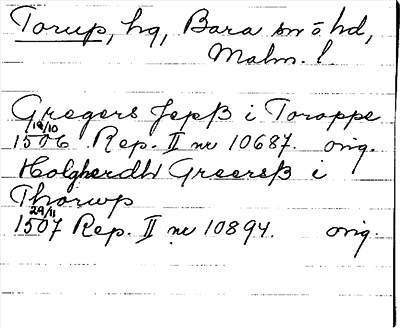 Torup, hg, Bara sn o hd,
Malm. l.
Gregers Jepß i Toroppe
19/10
1506 Rep. II nr 10687. orig.
Holgherdh Greersß i
Thorwp
29/11
1507 Rep. II nr 10894. orig.